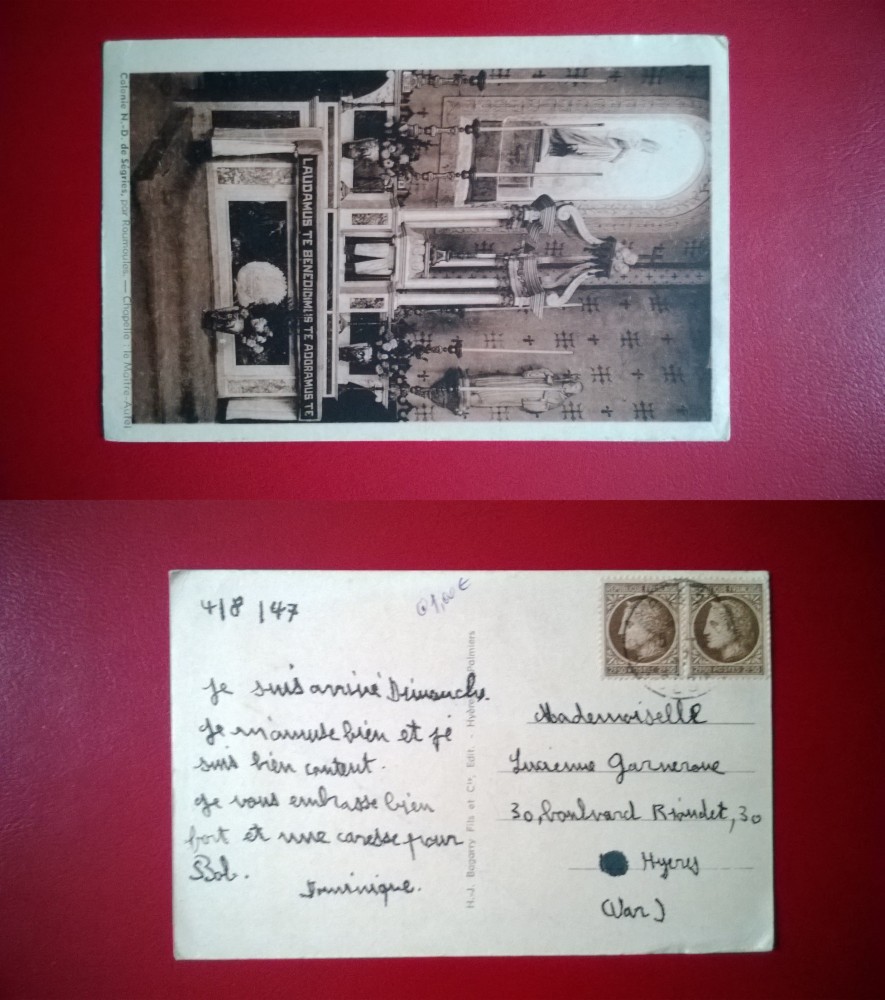 Colonie N.-D. de Ségries, par Moumoules. — Chapelle : le Maître-Autel
LAUDAMUS TE BENEDICIMUS TE ADORAMUS TE
4/8/47
1,00€
Je suis arrivé Dimanche.
Je m'amuse bien et je
suis bien content.
Je vous embrasse bien
fort et une caresse pour
Bob.
Dominique.
H.-J. Bagarry Fils et Cie, Edit. - Hyères-Palmiers
Mademoiselle
Lucienne Garnerone
30, boulvard Riondet, 30
Hyeres
(Var)